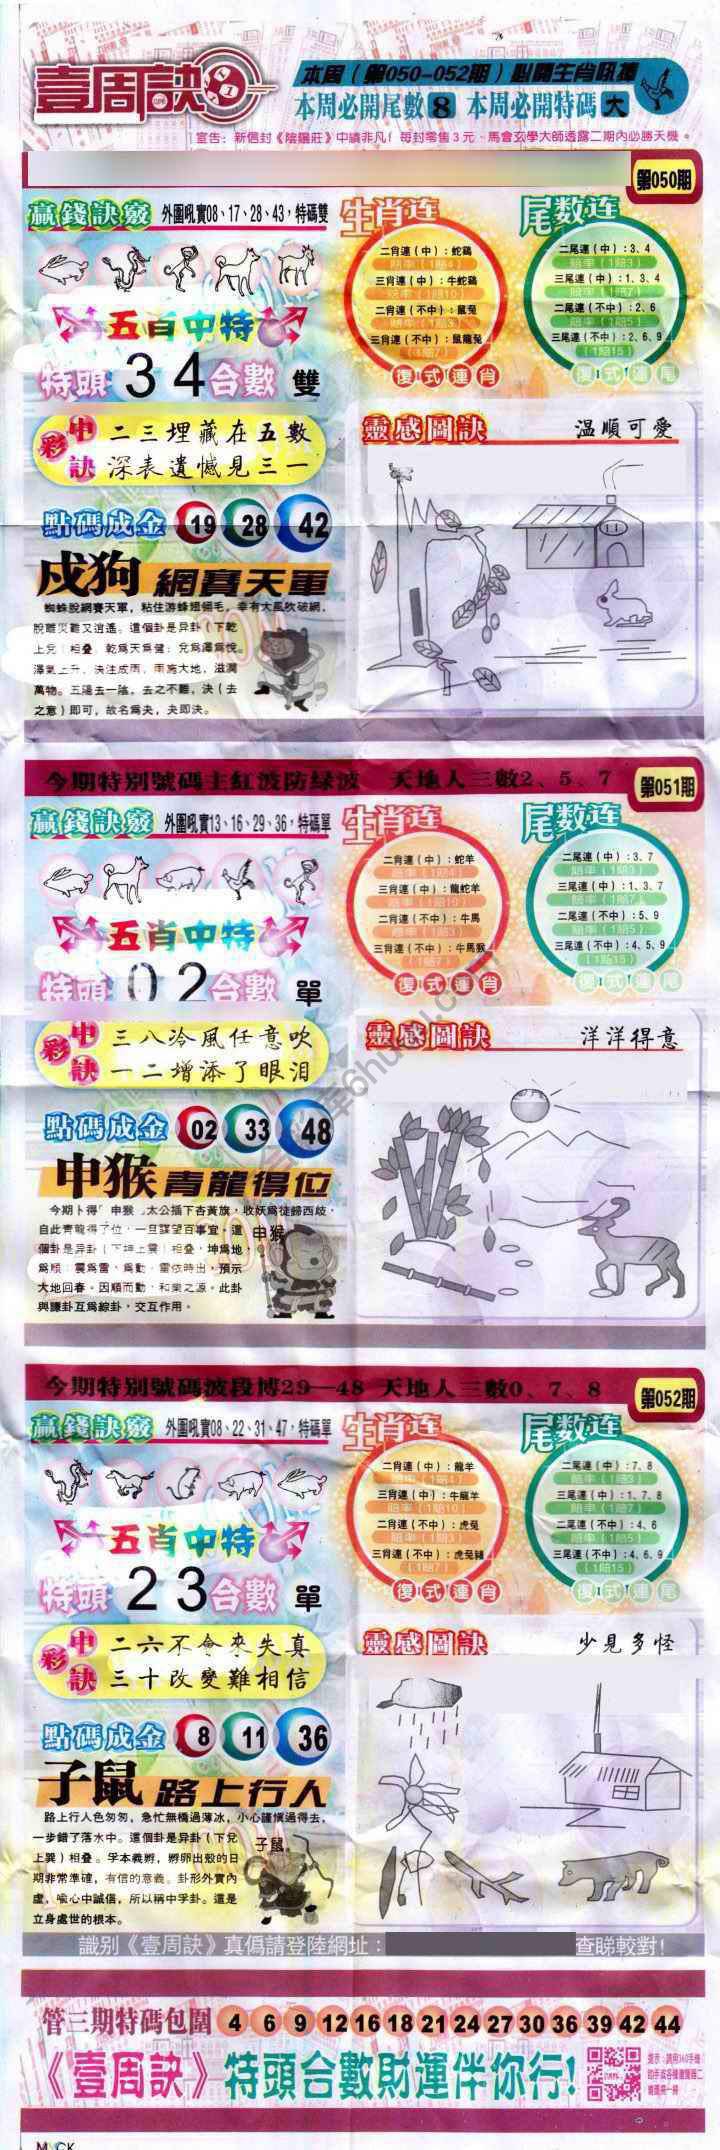 壹周訣
本周（第050-052期）必開生肖
本周必開尾數 8 本周必開特碼 大
宣告：新信封《陰陽莊》中績非凡！每封零售3元，馬會玄學大師透露二期內必勝天機。
第050期
贏錢訣竅 外圍吼實08、17、28、43，特碼雙
五肖中特
特頭 34 合數 雙
中彩訣
二三埋藏在五數
深表遺憾見三一
點碼成金 19 28 42
戌狗 網賽天軍
蜘蛛脫網賽天軍，粘住游蜂翅領毛，幸有大風吹破網，
脫離災難又逍遙。這個卦是异卦（下乾
上兌）相疊，乾為天為健；兌為澤為悅。
澤氣上升，決注成雨，雨施大地，滋潤
萬物。五陽去一陰，去之不難，決（去
之意）即可，故名為夬，夬即決。
生肖连
二肖連（中）：蛇鷄
賠率（1賠4）
三肖連（中）：牛蛇鷄
賠率（1賠10）
二肖連（不中）：鼠兔
賠率（1賠3）
三肖連（不中）：鼠龍兔
（1賠7）
復式連肖
尾数连
二尾連（中）：3、4
賠率（1賠3）
三尾連（中）：1、3、4
賠率（1賠7）
二尾連（不中）：2、6
賠率（1賠5）
三尾連（不中）：2、6、9
（1賠15）
復式連尾
靈感圖訣 温順可愛
今期特別號碼主紅波防緑波 天地人三數2、5、7
第051期
贏錢訣竅 外圍吼實13、16、29、36，特碼單
五肖中特
特頭 02 合數 單
中彩訣
三八冷風任意吹
一二增添了眼泪
點碼成金 02 33 48
申猴 青龍得位
今期卜得「申猴」，太公插下杏黃旗，收妖為徒歸西岐，
自此青龍得了位，一旦謀望百事宜。這
個卦是异卦（下坤上震）相疊，坤為地，
為順；震為雷，為動。雷依時出，預示
大地回春。因順而動，和樂之源。此卦
與謙卦互為綜卦，交互作用。
申猴
生肖连
二肖連（中）：蛇羊
賠率（1賠4）
三肖連（中）：龍蛇羊
賠率（1賠10）
二肖連（不中）：牛馬
賠率（1賠3）
三肖連（不中）：牛馬猴
（1賠7）
復式連肖
尾数连
二尾連（中）：3、7
賠率（1賠3）
三尾連（中）：1、3、7
賠率（1賠7）
二尾連（不中）：5、9
賠率（1賠5）
三尾連（不中）：4、5、9
（1賠15）
復式連尾
靈感圖訣 洋洋得意
今期特別號碼波段博29—48 天地人三數0、7、8
第052期
贏錢訣竅 外圍吼實08、22、31、47，特碼單
五肖中特
特頭 23 合數 單
中彩訣
二六不會來失真
三十改變難相信
點碼成金 8 11 36
子鼠 路上行人
路上行人色匆匆，急忙無橋過薄冰，小心謹慎過得去，
一步錯了落水中。這個卦是异卦（下兌
上巽）相疊。孚本義孵，孵卵出殼的日
期非常準確，有信的意義。卦形外實內
虛，喻心中誠信，所以稱中孚卦。這是
立身處世的根本。
子鼠
生肖连
二肖連（中）：龍羊
賠率（1賠4）
三肖連（中）：牛龍羊
賠率（1賠10）
二肖連（不中）：虎兔
賠率（1賠3）
三肖連（不中）：虎兔豬
（1賠7）
復式連肖
尾数连
二尾連（中）：7、8
賠率（1賠3）
三尾連（中）：1、7、8
賠率（1賠7）
二尾連（不中）：4、6
賠率（1賠5）
三尾連（不中）：4、6、9
（1賠15）
復式連尾
靈感圖訣 少見多怪
識別《壹周訣》真僞請登陸網址： 查睇較對！
管三期特碼包圍 4 6 9 12 16 18 21 24 27 30 36 39 42 44
《壹周訣》特頭合數財運伴你行！